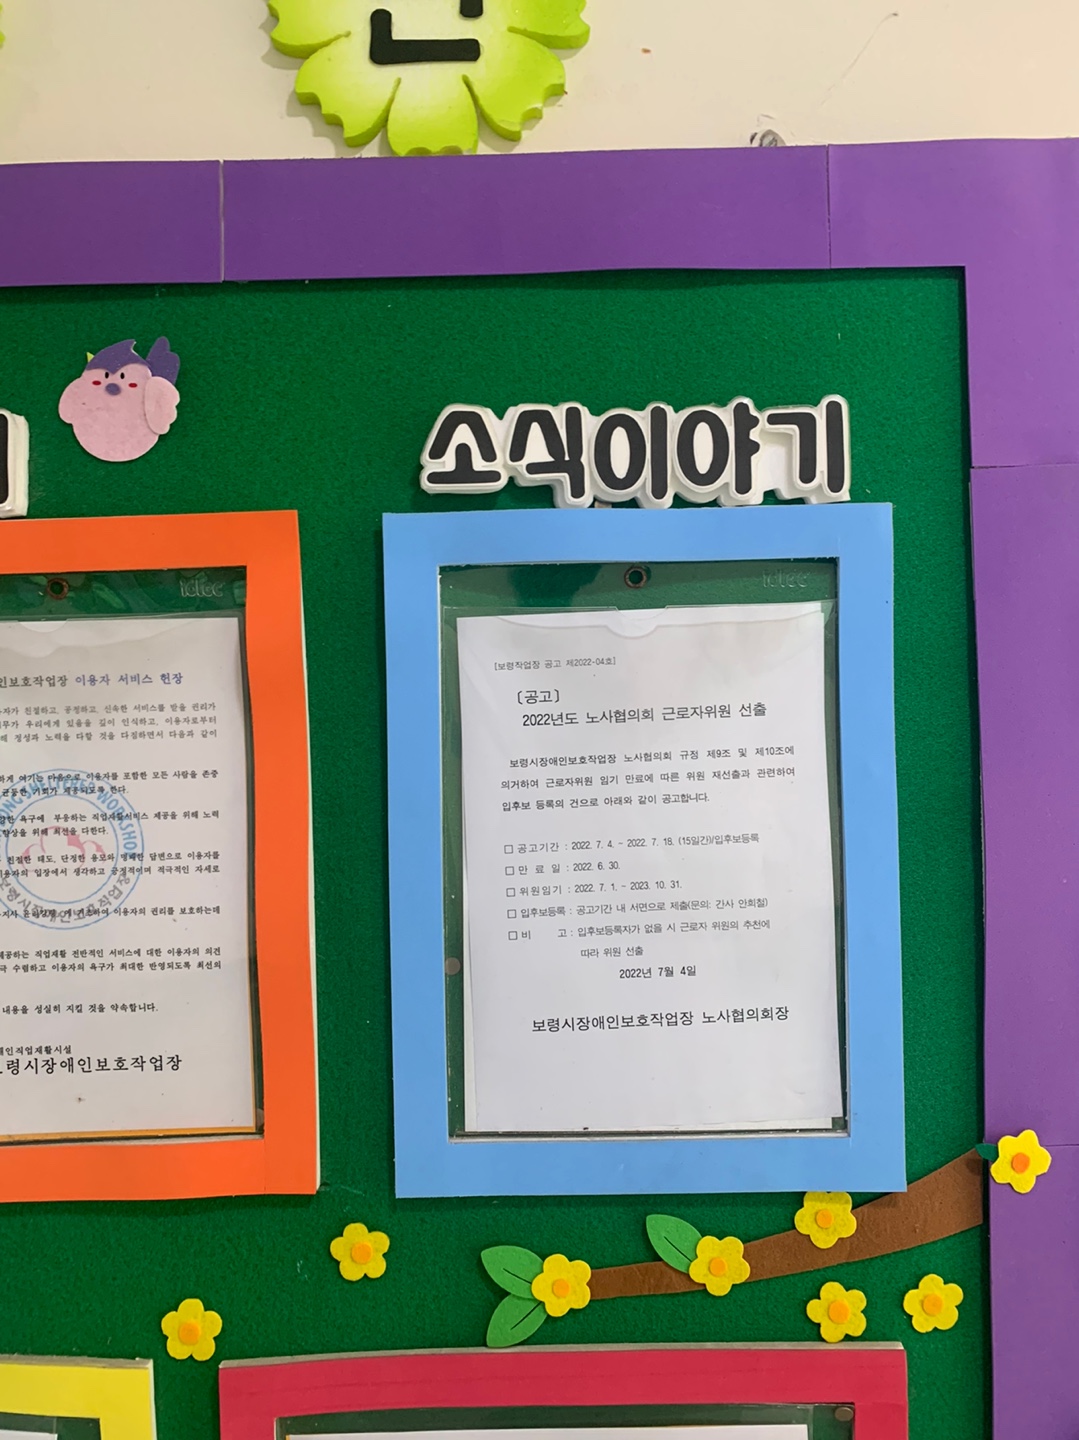 소식이야기
idec
idec
인보호작업장 이용자 서비스 헌장
자가 친절하고, 공정하고, 신속한 서비스를 받을 권리가
무가 우리에게 있음을 깊이 인식하고, 이용자로부터
해 정성과 노력을 다할 것을 다짐하면서 다음과 같이
하게 여기는 마음으로 이용자를 포함한 모든 사람을 존중
균등한 기회가 제공되도록 한다.
양한 욕구에 부응하는 직업재활서비스 제공을 위해 노력
향상을 위해 최선을 다한다.
친절한 태도, 단정한 용모와 명쾌한 답변으로 이용자를
이용자의 입장에서 생각하고 긍정적이며 적극적인 자세로
이용자의 권리를 보호하는데
제공하는 직업재활 전반적인 서비스에 대한 이용자의 의견
극 수렴하고 이용자의 욕구가 최대한 반영되도록 최선의
내용을 성실히 지킬 것을 약속합니다.
애인직업재활시설
보령시장애인보호작업장
[보령작업장 공고 제2022-04호]
〔공고〕
2022년도 노사협의회 근로자위원 선출
보령시장애인보호작업장 노사협의회 규정 제9조 및 제10조에
의거하여 근로자위원 임기 만료에 따른 위원 재선출과 관련하여
입후보 등록의 건으로 아래와 같이 공고합니다.
□ 공고기간 : 2022. 7. 4. - 2022. 7. 18. (15일간)/입후보등록
□ 만 료 일 : 2022. 6. 30.
□ 위원임기 : 2022. 7. 1. - 2023. 10. 31.
□ 입후보등록 : 공고기간 내 서면으로 제출(문의: 간사 안희철)
□ 비 고 : 입후보등록자가 없을 시 근로자 위원의 추천에
따라 위원 선출
2022년 7월 4일
보령시장애인보호작업장 노사협의회장